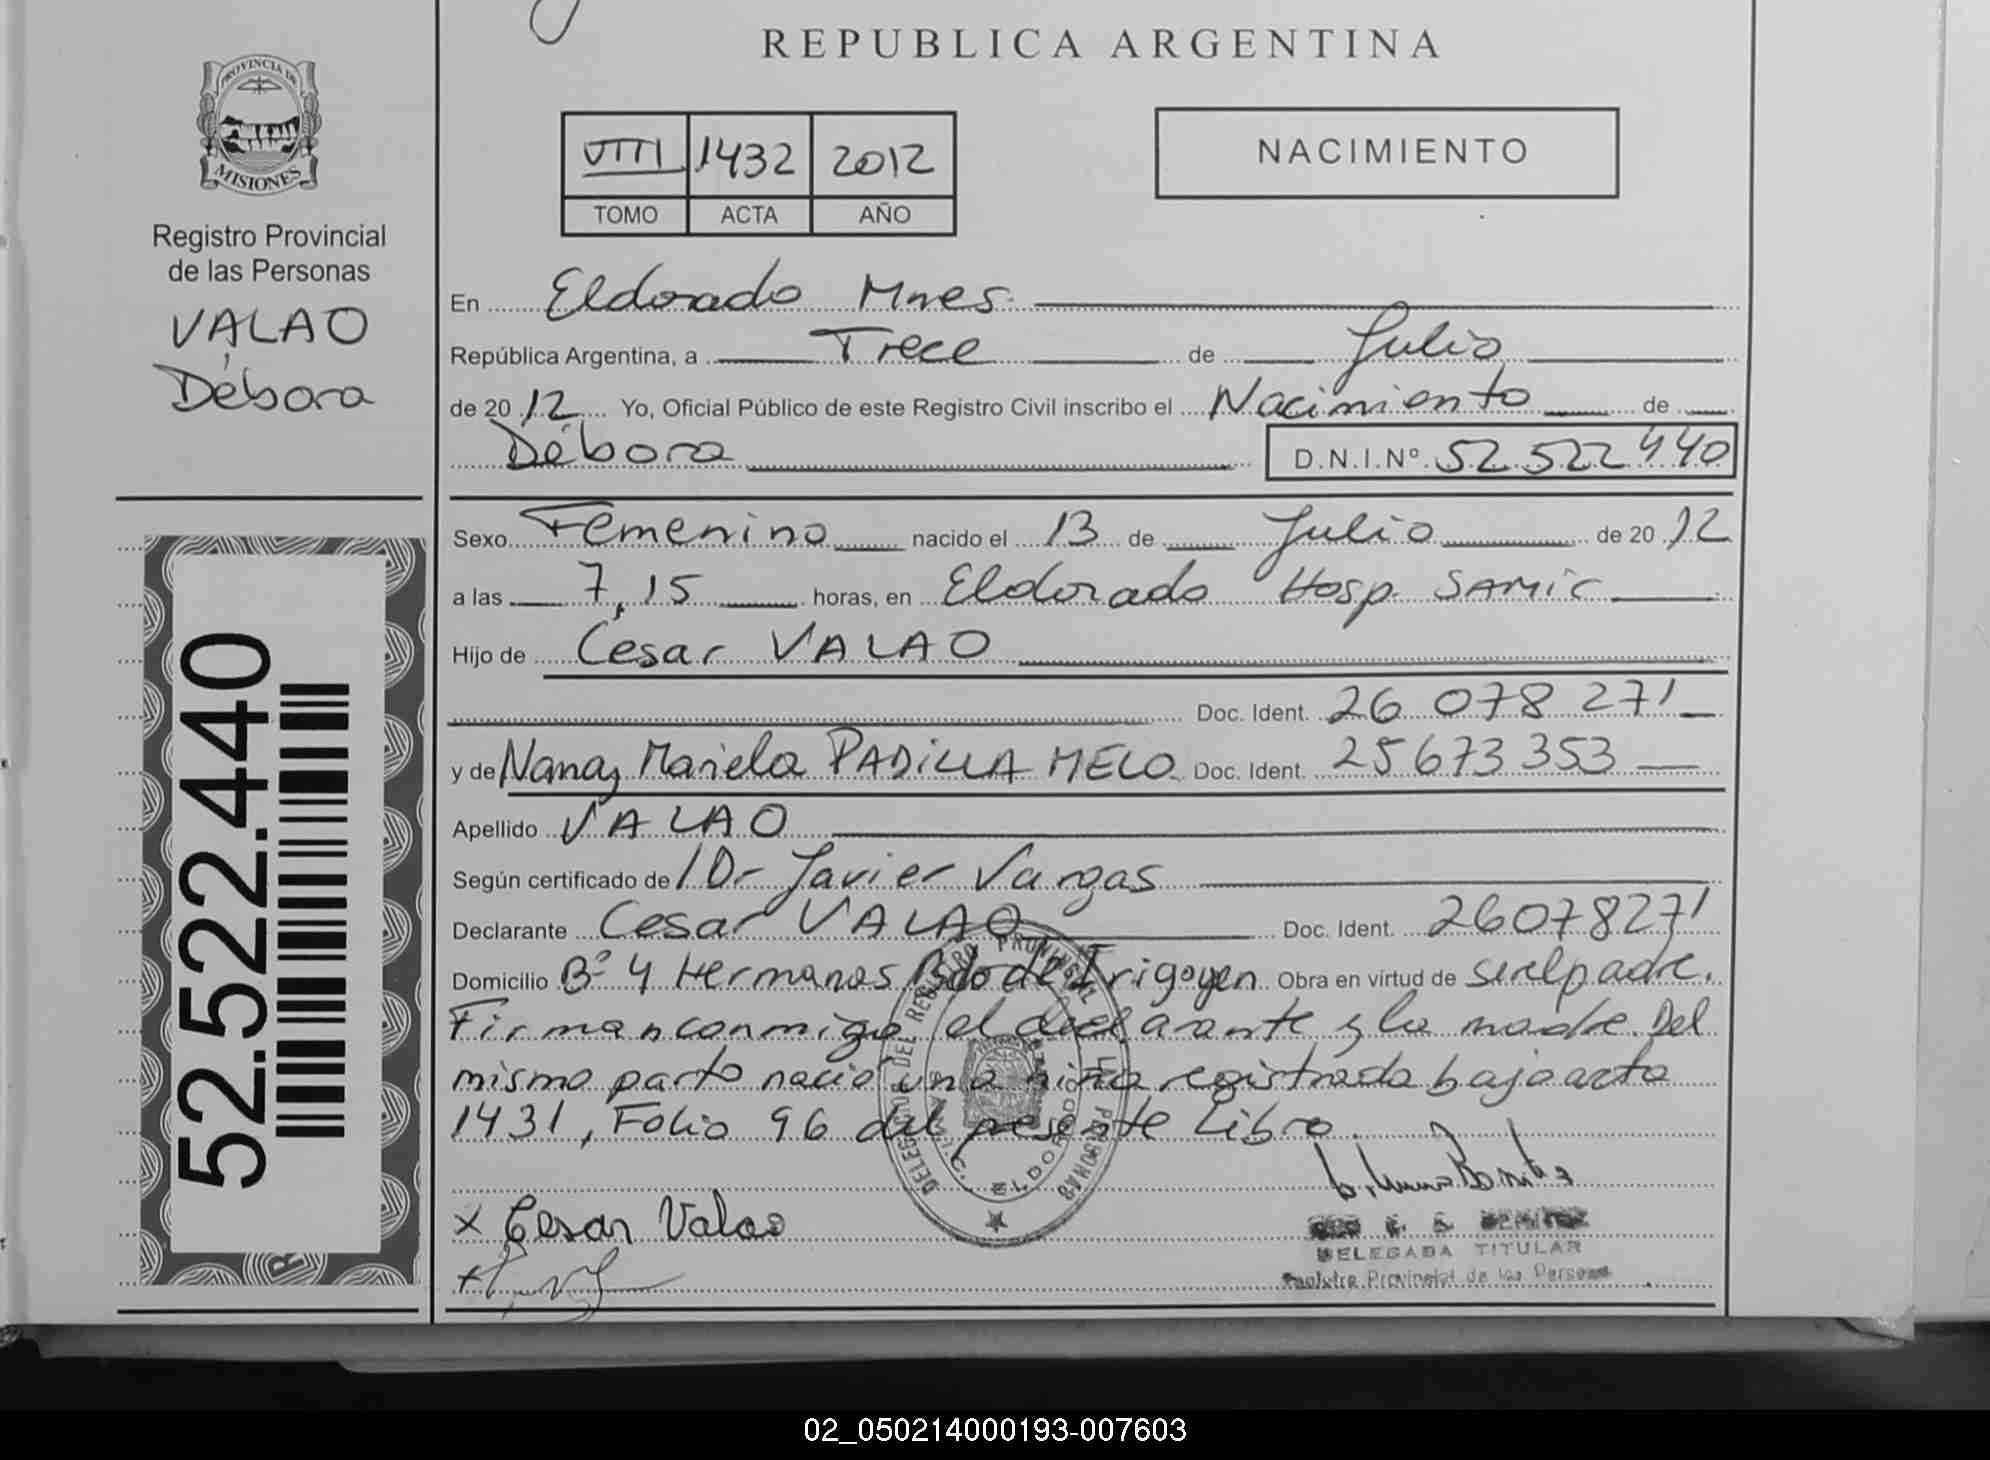 REPUBLICA ARGENTINA
PROVINCIA DE
MISIONES
Registro Provincial
de las Personas
VALAO
Débora
VIII 1432 2012
TOMO ACTA AÑO
NACIMIENTO
En Eldorado Mnes.
República Argentina, a Trece de Julio
de 2012 Yo, Oficial Público de este Registro Civil inscribo el Nacimiento de
Débora D.N.I.Nº 52 522 440
Sexo Femenino nacido el 13 de Julio de 2012
a las 7,15 horas, en Eldorado Hosp. SAMIC
Hijo de César VALAO
Doc. Ident. 26 078 271
y de Mariela PADILLA MELO Doc. Ident. 25 673 353
Apellido VALAO
Según certificado de Dr Javier Vargas
Declarante Cesar VALAO Doc. Ident. 26078271
Domicilio Bº 4 Hermanos Bdo de Irigoyen Obra en virtud de ser el padre.
Firman conmigo el declarante y la madre. Del
mismo parto nacio una niña registrada bajo acta
1431, Folio 96 del presente Libro.
x Cesar Valao
DELEGADA TITULAR
Registro Provincial de las Personas
52.522.440
02_050214000193-007603